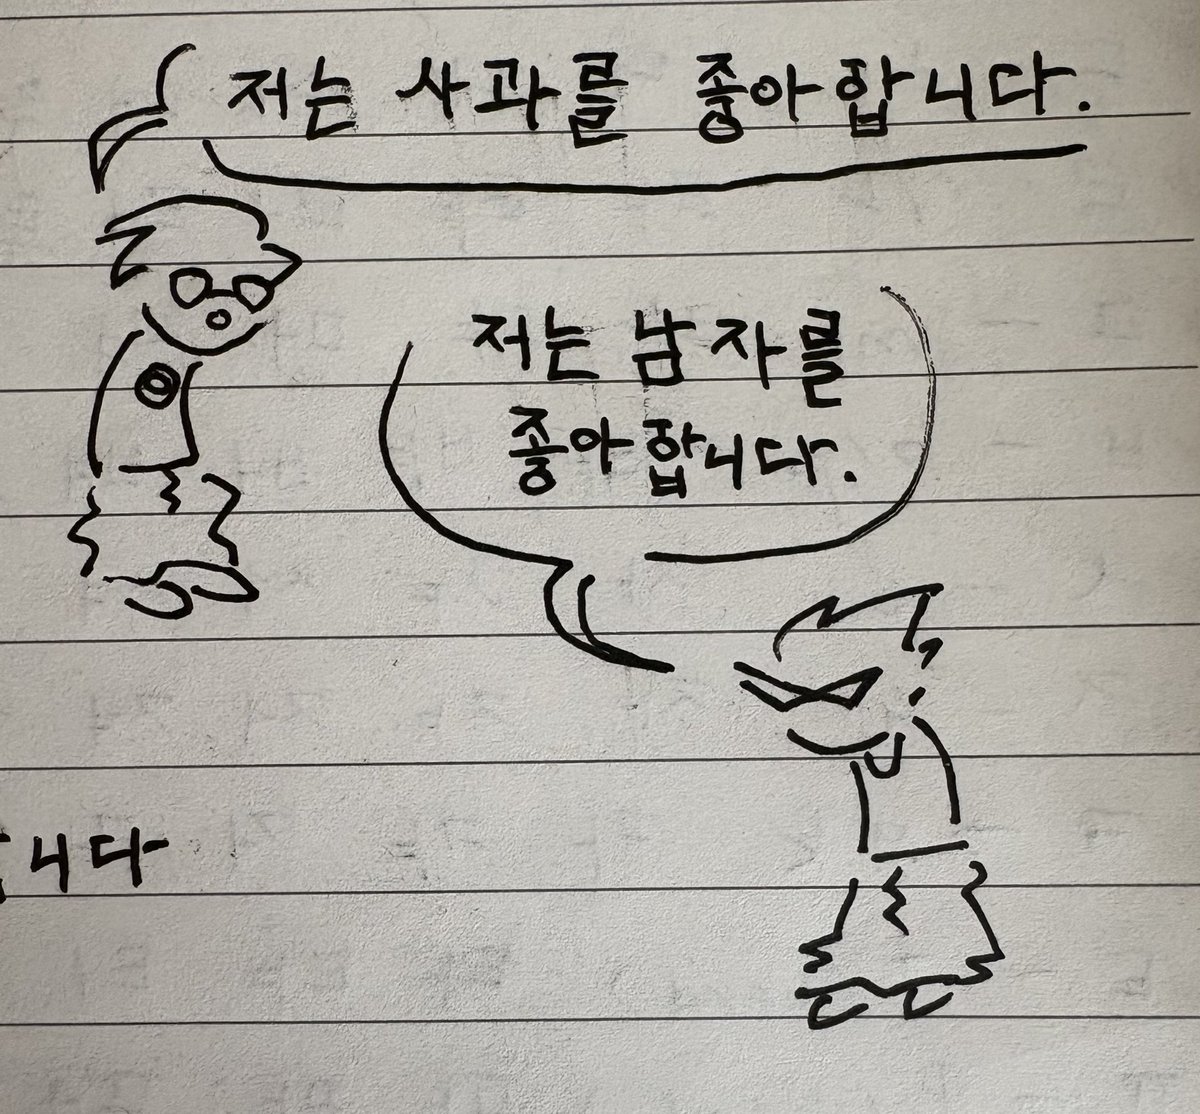 저는 사과를 좋아합니다.
저는 남자를
좋아합니다.
니다